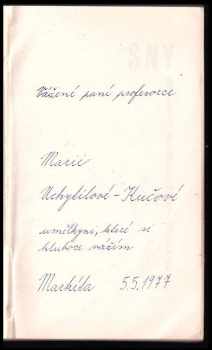 Vážené paní profesorce
Marii
Uchytilové - Kučové
umělkyni, které si
hluboce vážím
Markéta 5.5.1977